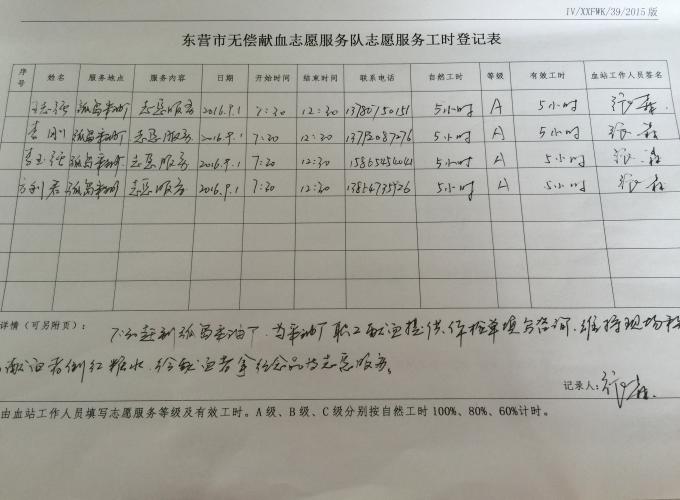 IV/XXFWK/39/2015 版
东营市无偿献血志愿服务队志愿服务工时登记表
序号 姓名 服务地点 服务内容 日期 开始时间 结束时间 联系电话 自然工时 等级 有效工时 血站工作人员签名
孤岛采油厂 志愿服务 2016.9.1 7:30 12:30 13780750151 5小时 A 5小时
李刚 孤岛采油厂 志愿服务 2016.9.1 7:30 12:30 5小时 A 5小时
孤岛采油厂 志愿服务 2016.9.1 7:30 12:30 15865454041 5小时 A 5小时
孤岛采油厂 志愿服务 2016.9.1 7:30 12:30 5小时 A 5小时
详情(可另附页): 赶到孤岛采油厂,为采油厂职工献血提供体检单填写咨询,维持现场秩
献血者倒红糖水,给献血者拿纪念品等志愿服务。
记录人:
由血站工作人员填写志愿服务等级及有效工时。A 级、B 级、C 级分别按自然工时 100%、80%、60%计时。